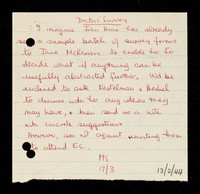 Doctors' Survey
I imagine John Hume has already
sent a sample batch of survey forms
to Jane McKerron to enable her to
decide what if anything can be
usefully abstracted further. W'd be
inclined to ask Edelman + Herbal
to discuss with her any ideas they
may have, & then send us a note
with concrete suggestions.
However, am not against inviting them
to attend EC.
MS
17/3
13/2/44